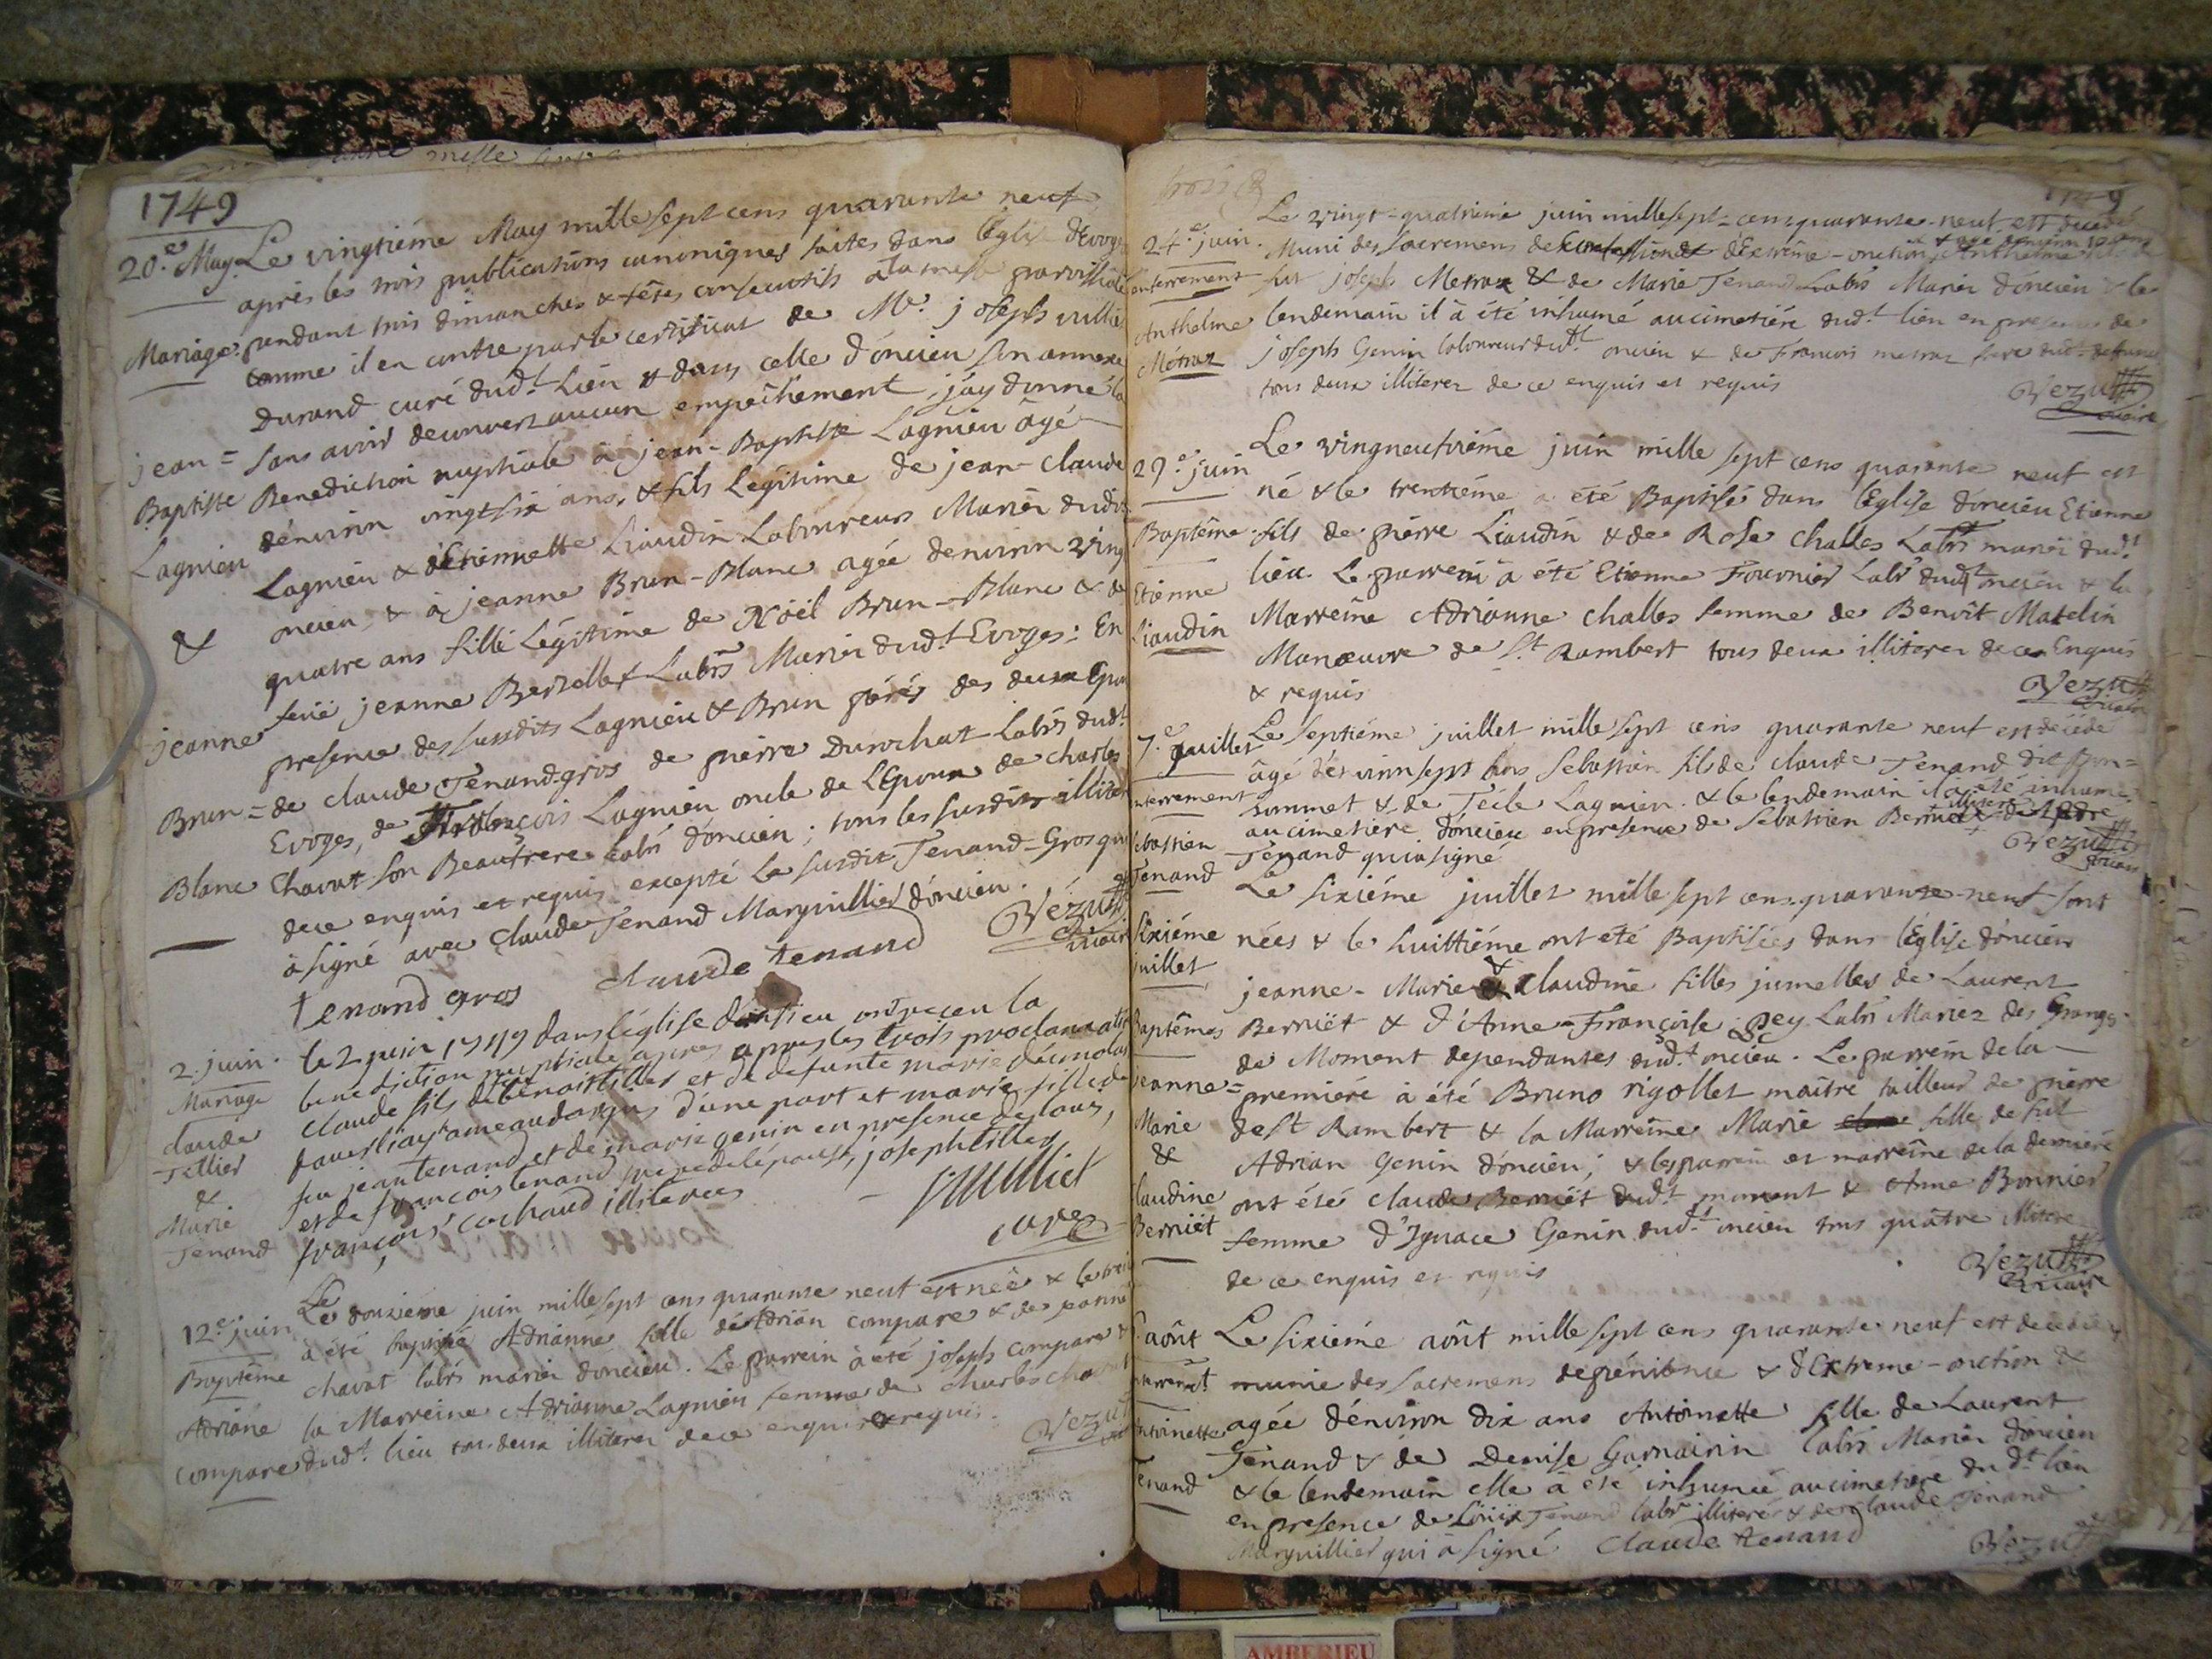 1749
20.e May. Le vingtiéme May mille sept cens quarante neuf
après les trois publications canoniques faites dans l'Eglise d'Evoges
Mariage. pendant trois dimanches & fêtes consecutifs à la messe paroissiale
comme il en conste par le certificat de Mr. joseph
Durand curé dud.t Lieu & dans celle d'óncieu son annexe
jean = sans avoir decouvert aucun empêchement, j'ay donné la
Baptiste Benediction nuptiale à jean-Baptiste Lagnieu âgé
d'environ vingt six ans, & fils Légitime de jean-claude
Lagnieu Lagnieu & d'Etiennette Liaudin Laboureurs Mariéz dudit
oncieu, & à jeanne Brun-Blanc agée denviron vingt
& quatre ans fille Légitime de Nöël Brun-Blanc & de
feüe jeanne Berzellet Labrs Mariéz dud.t Evoges: En
jeanne presence des susdits Lagnieu & Brun péres des deux Epoux
Brun = de claude Tenand-gros de pierre Durochat Labrs dud.t
Evoges, de François Lagnieu oncle de l'Epoux de charles
Blanc Chavat son Beaufrere Labr d'óncieu; tous les susdits illiterez
dece enquis et requis excepté le susdit Tenand-Gros qui
à signé avec claude Tenand Marguillier d'óncieu.
tenand gros claude tenand Vezu
vicaire
2. juin. le 2 juin 1749 dans l'église d'ontieu ont receu la
Mariage benediction nuptiale apres apres les trois proclamations
claude claude fils de benoist tillet et de defunte marie
Tillier d'une part et marie fille de
& feu jean tenand et de marie genin en presence de louis,
Marie et de françois tenand frere de lepouse, joseph tillet,
Tenand françois cochaud illiterees
curé
12.e juin Le douziéme juin mille sept cens quarante neuf est née & le
Baptême à été baptisée Adrianne fille de Adrian compare & de jeanne
chavat labrs mariéz d'oncieu. Le parrein à été joseph compare &
Adriane la Marreine Adrianne Lagnieu femme de charles chavat
compare dud.t lieu tous deux illiterez de ce enquis & requis. Vezu
1749
24.e juin. Le vingt-quatriéme juin mille sept-cens quarante-neuf est decedé
Muni des sacremens de Confession & d'Extrême-onction & agé denviron ans Anthelme fils de
enterrement fut joseph Metraz & de Marie Tenand Labrs Mariéz d'óncieu & le
Anthelme lendemain il à été inhumé au cimetiére dud.t lieu en presence de
Métraz joseph Genin laboureur dud.t oncieu & de François metraz frere dud.t defunct
tous deux illiterez de ce enquis et requis Vezu
vicaire
29.e juin Le vingneufviéme juin mille sept cens quarante neuf est
né & le trentiéme a été Baptisé dans l'Eglise d'oncieu Etienne
Baptême fils de pierre Liaudin & de Rose challes Labrs mariéz dud.t
Etienne lieu. Le parrein à été Etienne Fournier Labr dud.t oncieu & la
Liaudin Marreine Adrianne challes femme de Benoît Matelin
Manœuvre de S.t Rambert tous deux illiterez de ce Enquis
& requis Vezu
vicaire
7.e juillet Le septiéme juillet mille sept cens quarante neuf est décédé
âgé d'environ sept ans Sebastien fils de claude Tenand dit Bon=
enterrement sommet & de Técle Lagnieu. & le lendemain il a été inhumé
Sebastien au cimetiére d'oncieu en presence de Sebastien Berniet illiteré & de claude
Tenand Tenand qui a signé Vezu
vicaire
Sixiéme Le sixiéme juillet mille sept cens-quarante-neuf sont
juillet nées & le huittiéme ont eté Baptisées dans l'Eglise d'óncieu
jeanne-Marie & claudine filles jumelles de Laurent
Baptêmes Berniët & d'Anne-Françoise gey Labrs Mariéz des Granges
de Moment dependantes dud.t oncieu. Le parrein de la
jeanne= premiére à été Bruno rigollet maître tailleur de pierre
Marie de St Rambert & la Marreine Marie fille de fut
& Adrian Genin d'oncieu; & les parrein et marreine de la derniére
claudine ont été claude Berniët dud.t moment & Anne Bonnier
Berniët femme d'Ignace Genin dud.t oncieu tous quatre illiterez
de ce enquis et requis Vezu
vicaire
aoüt Le sixiéme aoüt mille sept cens quarante neuf est decedée
enterrem.t munie des sacremens de pénitence & d'Extreme-onction &
Antoinette agée d'environ dix ans Antoinette fille de Laurent
Tenand Tenand & de Denise Garnairin labrs Mariéz d'oncieu
& le lendemain elle à été inhumée au cimetiére dud.t lieu
en presence de Loüis Tenand labr illiteré & de claude Tenand
Marguillier qui à signé claude tenand Vezu
AMBERIEU